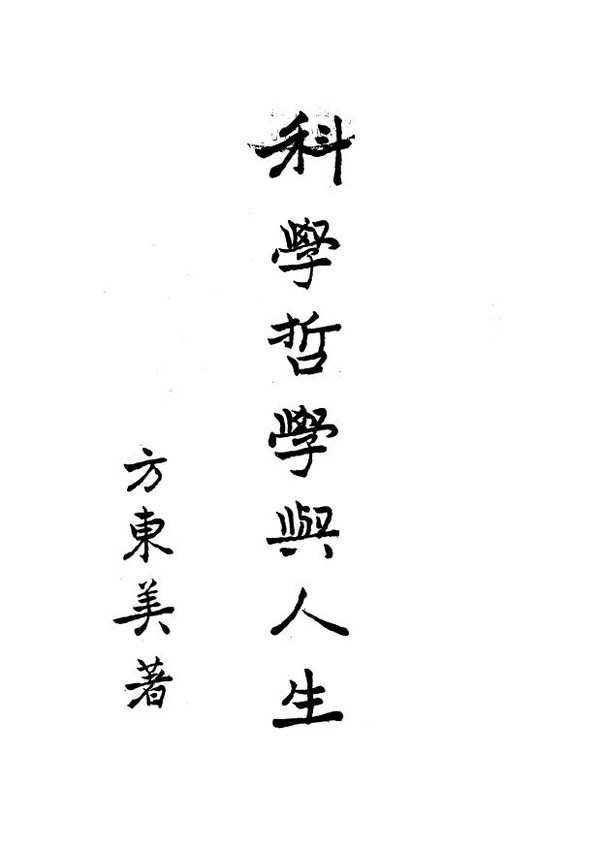 科學哲學與人生
方東美著